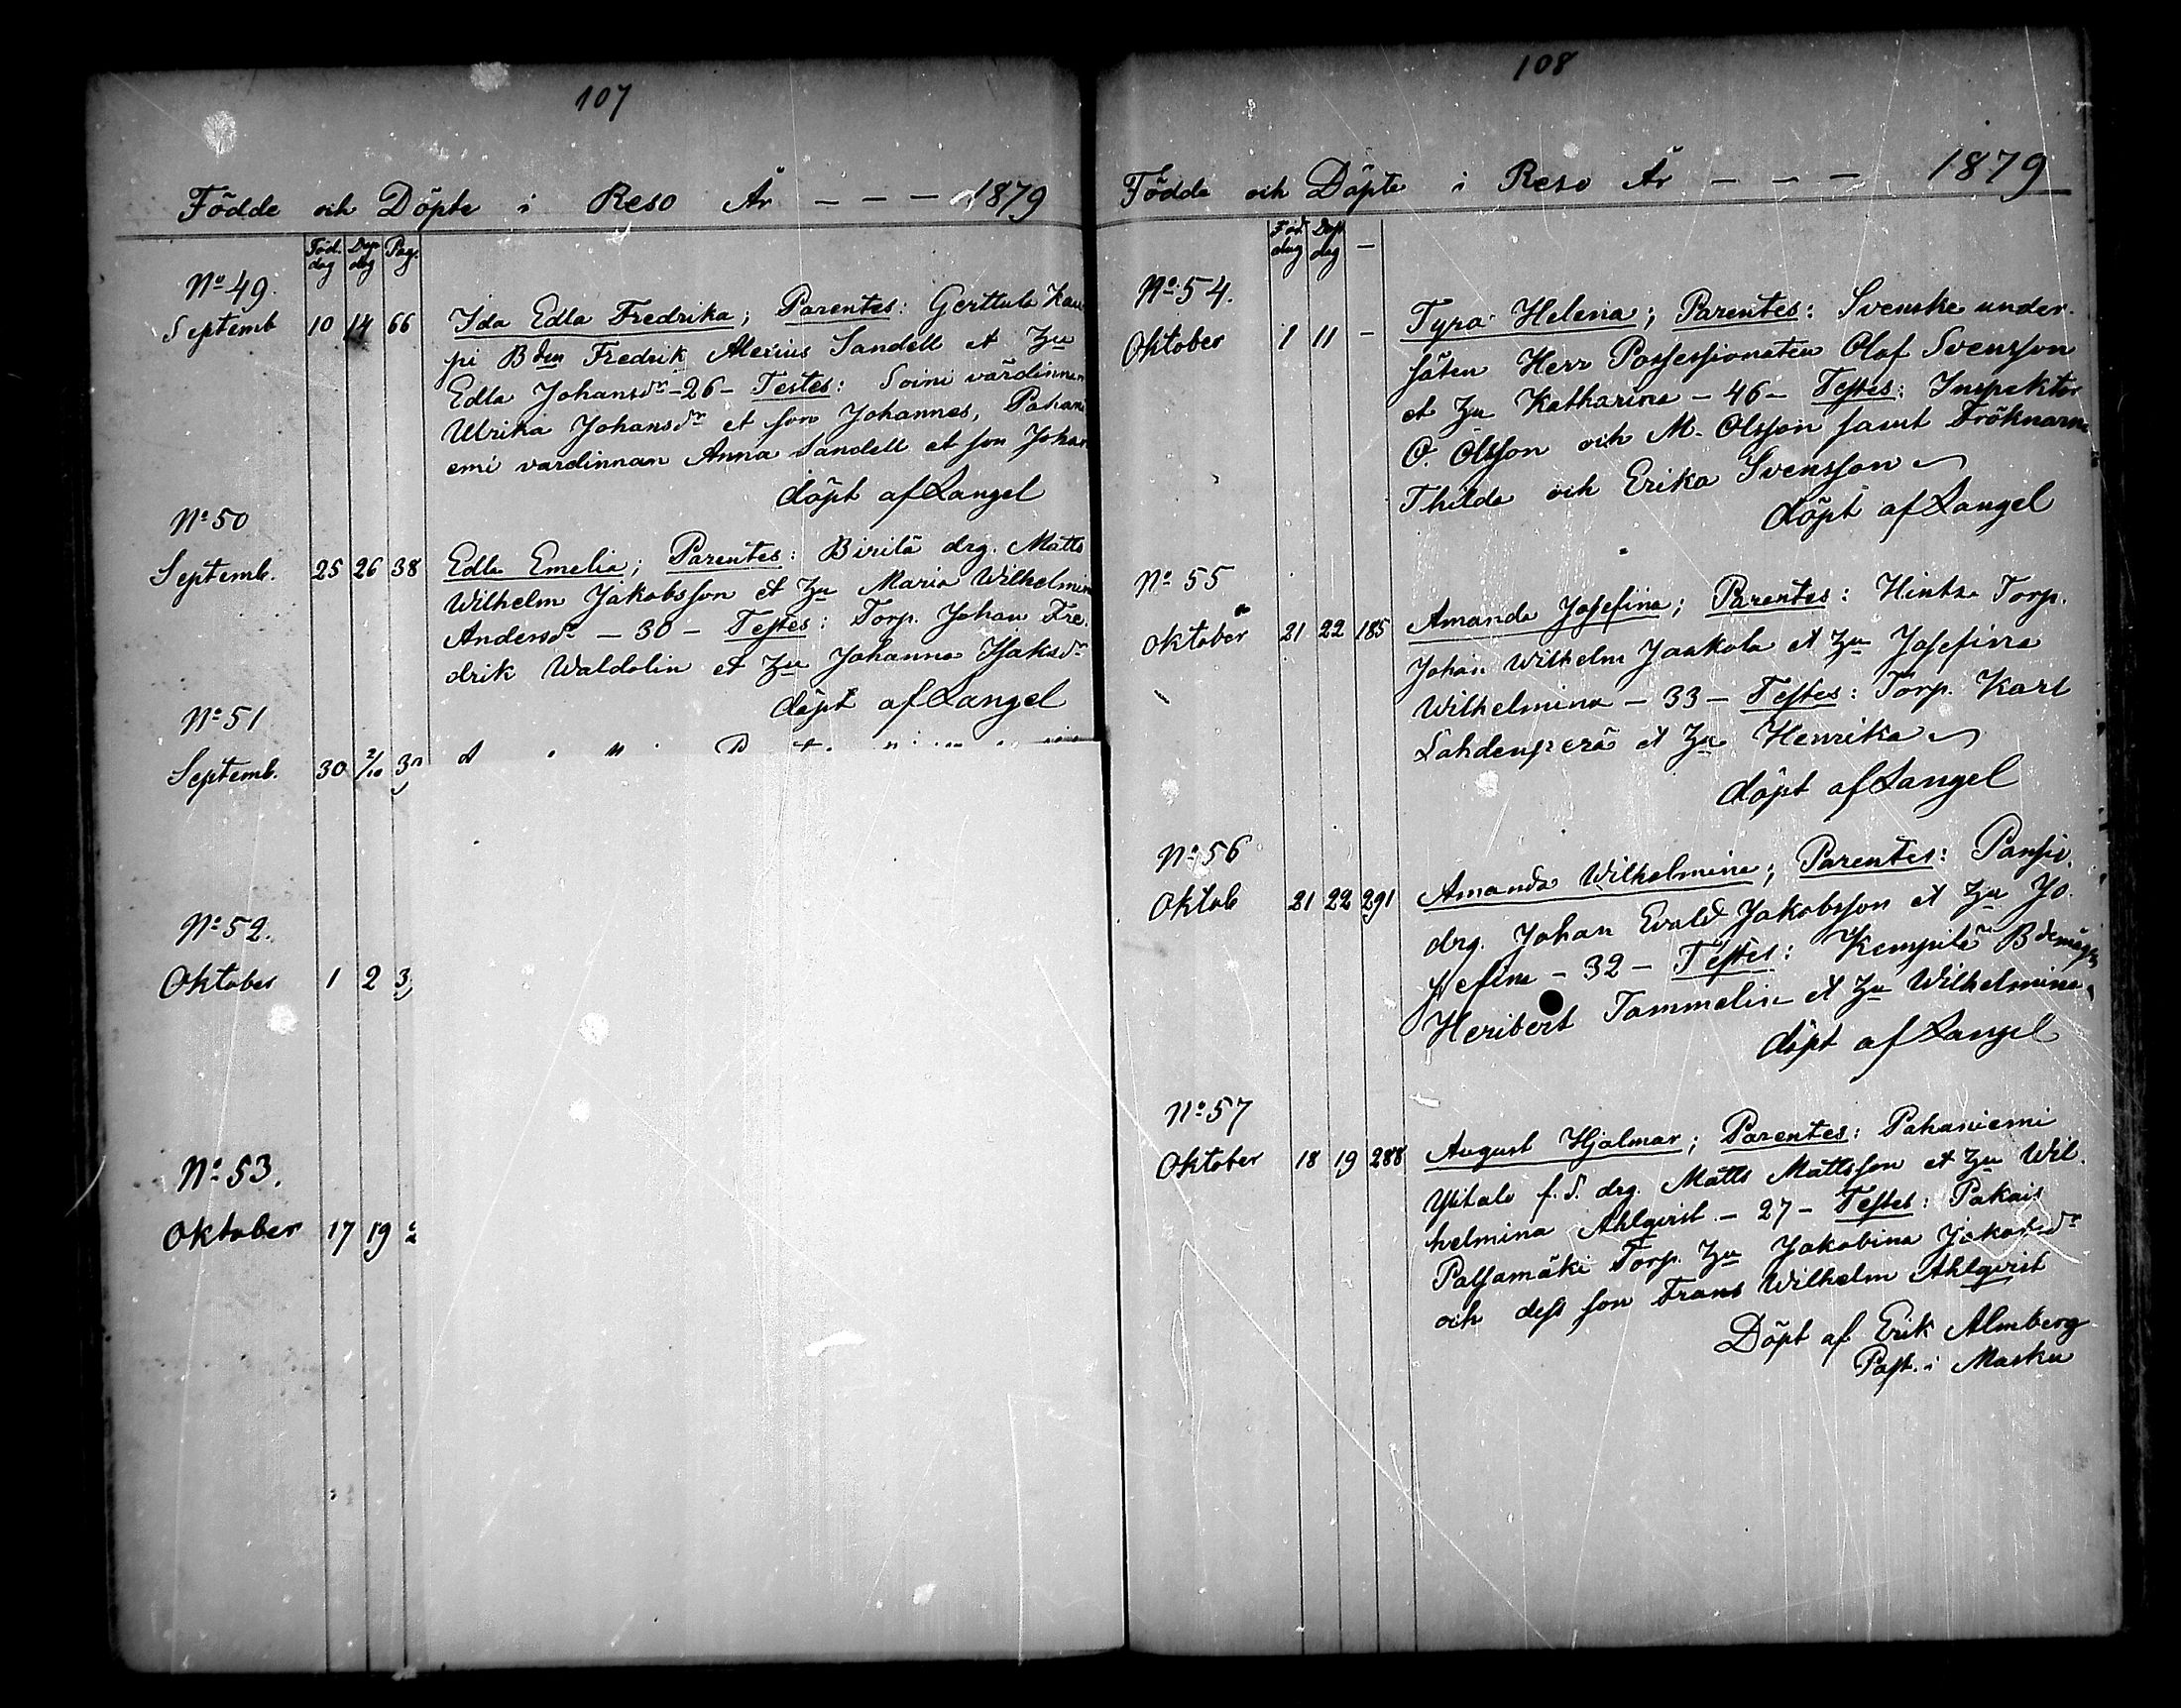 107
Födde och Döpte i Reso År - - - 1879
Föd. dag Döp dag Pag.
No 49.
Septemb 10 14 66 Ida Edla Fredrika; Parentes: Gerttula Kau
pi Bden Fredrik Alexius Sandell et Hu
Edla Johansdr - 26 - Testes: Soini värdinnan
Ulrika Johansdr et son Johannes, Pahani
emi vardinnan Anna Sandell et son Johan
döpt af Langel
No 50
Septemb. 25 26 38 Edla Emelia; Parentes: Birilä drg. Matts
Wilhelm Jakobsson et Hu Maria Wilhelmina
Andersdr - 30 - Testes: Torp. Johan Fre.
drik Waldolin et Hu Johanna Isaksdr
döpt af Langel
No 51
Septemb. 30 2/10
No 52.
Oktober 1 2 3
No 53.
Oktober 17 19
108
Födda och Döpte i Reso År - - - 1879
Föd dag Döp dag -
No 54.
Oktober 1 11 - Tyra Helena; Parentes: Svenske under.
såten Herr Possessionaten Olof Svensson
et Hu Katharina - 46 - Testes: Inspektor
O. Olsson och M. Olsson samt Fröknarna
Thilda och Erika Svensson
döpt af Langel
No 55
Oktober 21 22 185 Amanda Josefina; Parentes: Hintsa Torp.
Johan Wilhelm Jaakola et Hu Josefina
Wilhelmina - 33 - Testes: Torp. Karl
Lahdenperä et Hu Henrika
döpt af Langel
No 56
Oktob 21 22 291 Amanda Wilhelmina; Parentes: Pansio.
drg. Johan Evald Jakobsson et Hu Jo.
sefina - 32 - Testes: Kempilä
Heribert Tammelin et Hu Wilhelmina
döpt af Langel
No 57
Oktober 18 19 288 August Hjalmar; Parentes: Pahaniemi
Ylitalo f.d. drg. Matts Mattsson et Hu Wil.
helmina Ahlqvist - 27 - Testes: Pakais
Palsamäki Torp. Hu Jakobina Jakobsdr
och dess son Frans Wilhelm Ahlqvist
Döpt af Erik Almberg
Past. i Masku